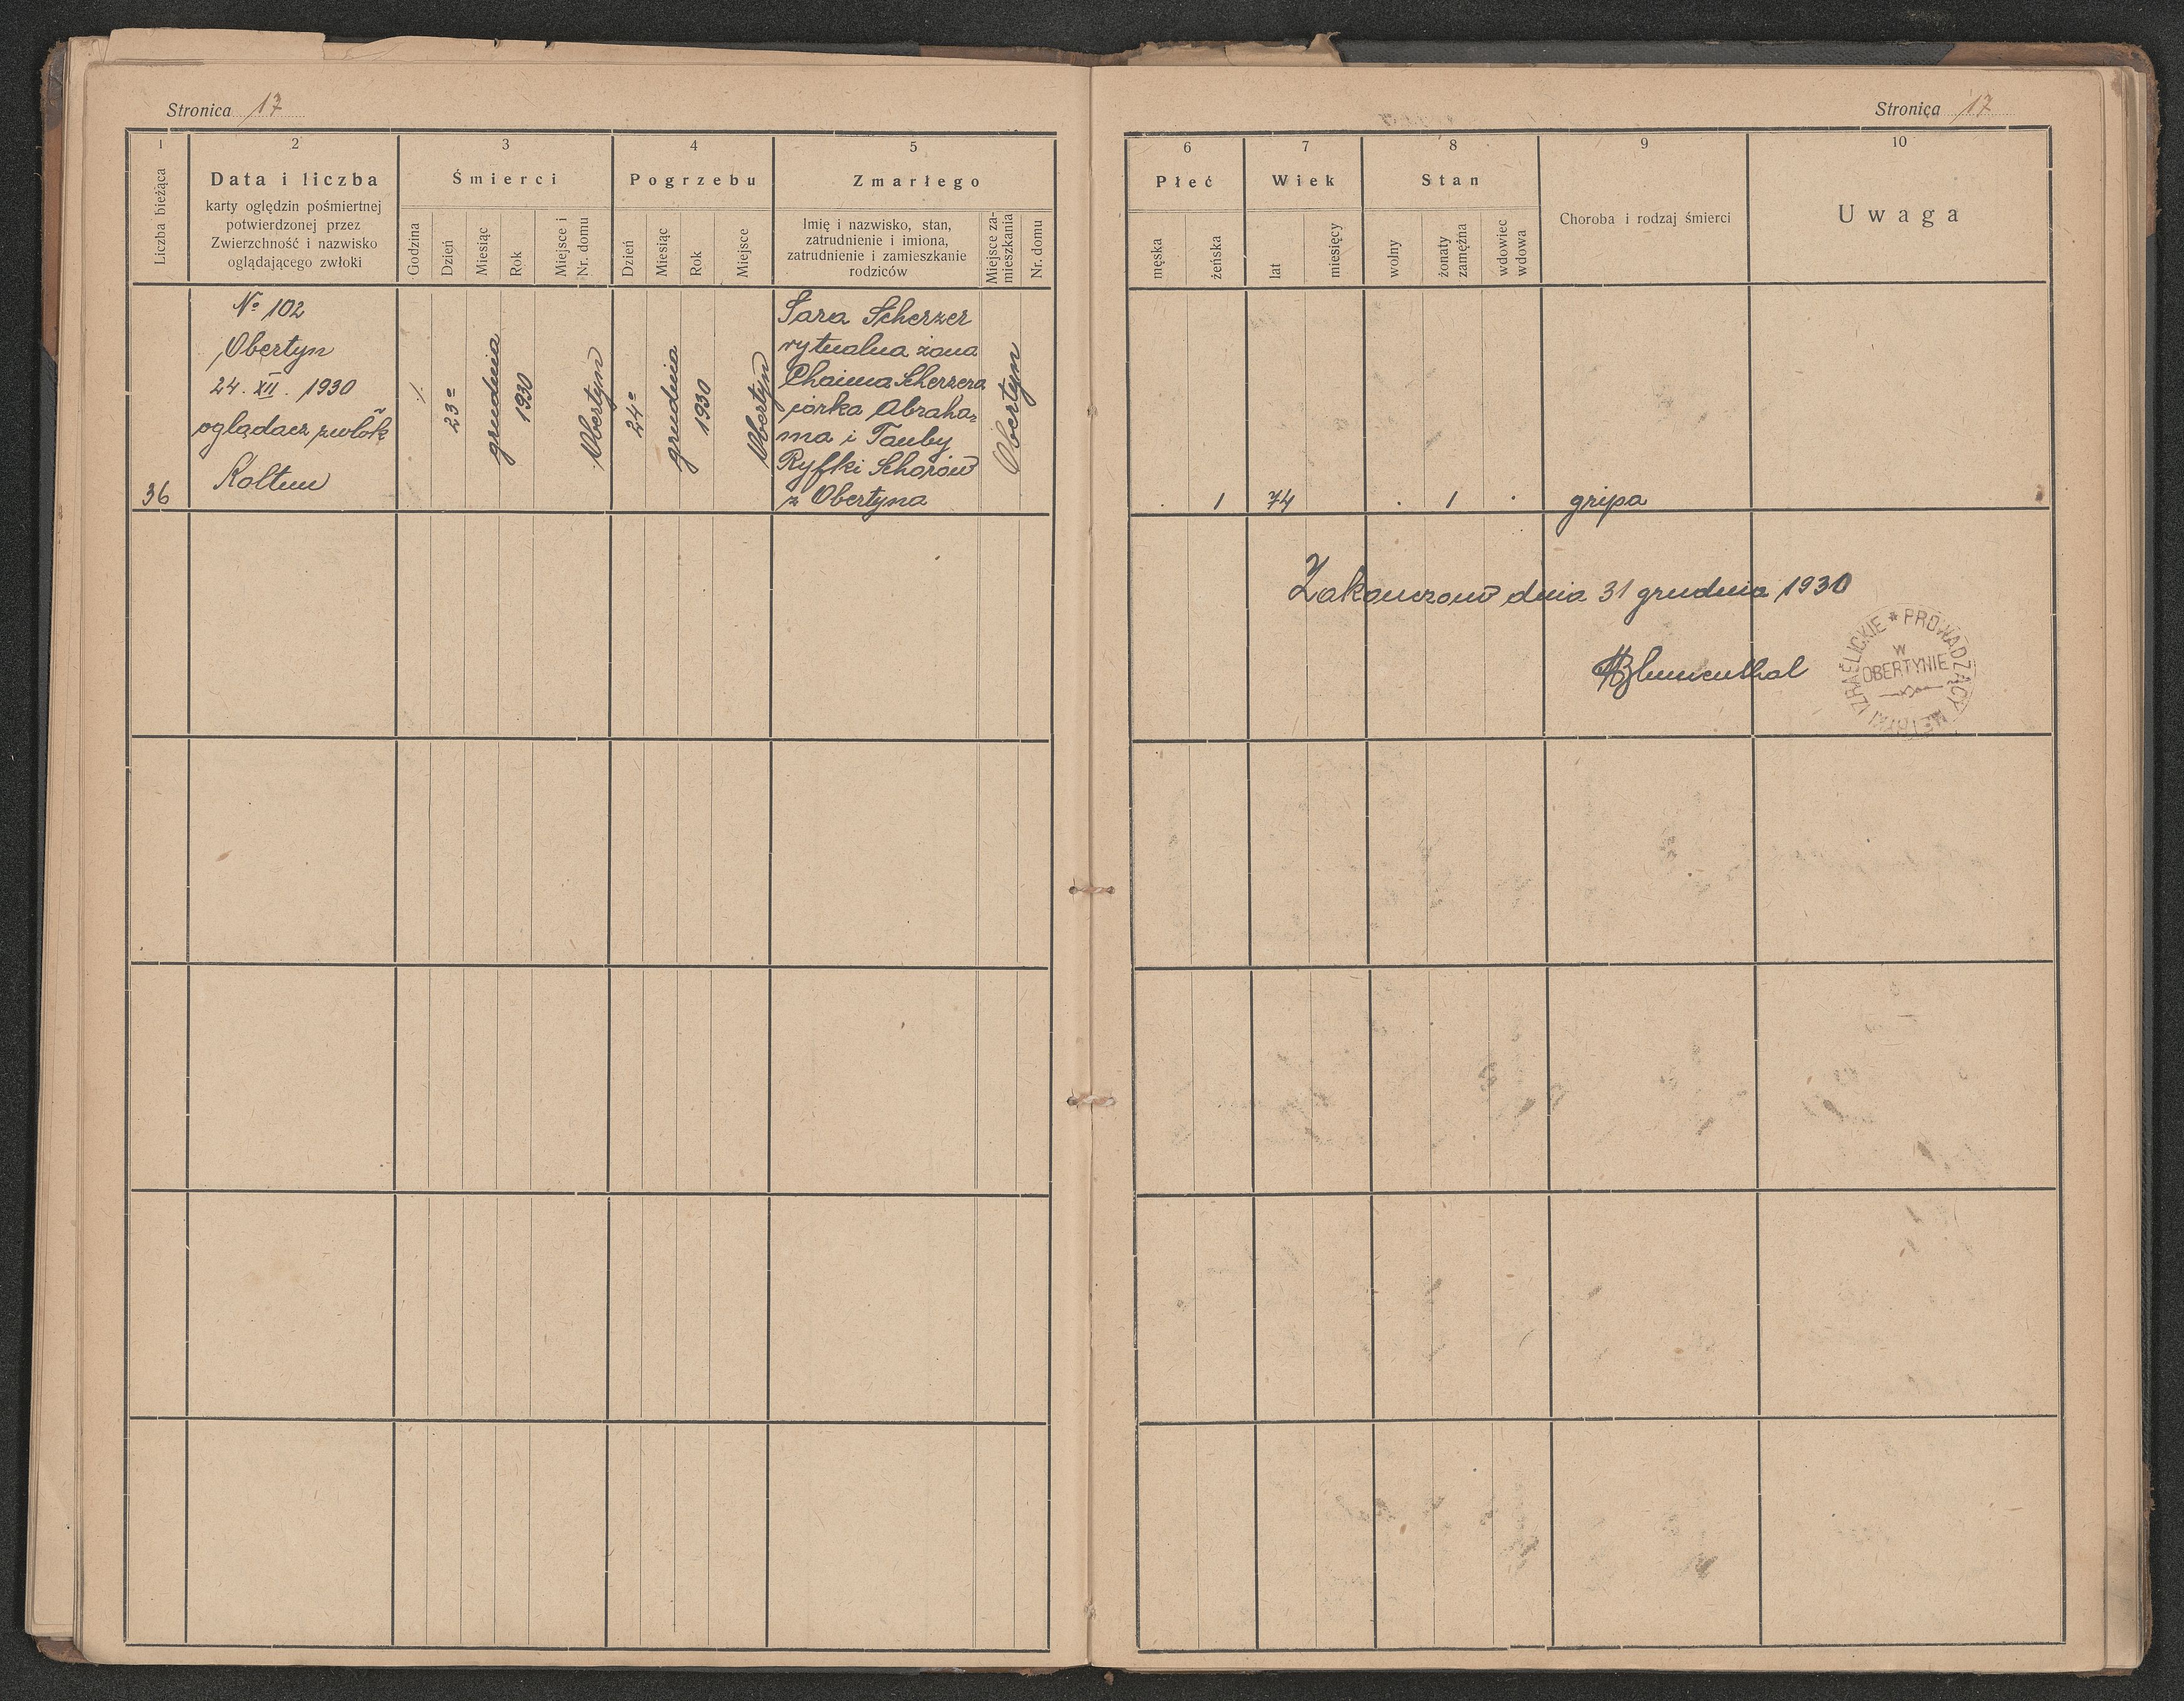 Stronica 17
1
2
3
4
5
Liczba bieżąca
Data i liczba
karty oględzin pośmiertnej
potwierdzonej przez
Zwierzchność i nazwisko
oglądającego zwłoki
Śmierci
Godzina
Dzień
Miesiąc
Rok
Miejsce i
Nr. domu
Pogrzebu
Dzień
Miesiąc
Rok
Miejsce
Zmarłego
Imię i nazwisko, stan,
zatrudnienie i imiona,
zatrudnienie i zamieszkanie
rodziców
Miejsce za-
mieszkania
Nr. domu
36
No 102
Obertyn
24. XII. 1930
oglądacz zwłok
Koltun
23o
grudnia
1930
Obertyn
24o
grudnia
1930
Obertyn
Sara Scherzer
rytualna żona
Chaima Scherzera
córka Abraha-
ma i Tauby
Ryfki Schorów
z Obertyna
Obertyn
Stronica 17
6
7
8
9
10
Płeć
męska
żeńska
Wiek
lat
miesięcy
Stan
wolny
żonaty
zamężna
wdowiec
wdowa
Choroba i rodzaj śmierci
Uwaga
1
74
1
gripa
Zakończono dnia 31 grudnia 1930
Blumenthal
PROWADZĄCY METRYKI IZRAELICKIE
W
OBERTYNIE